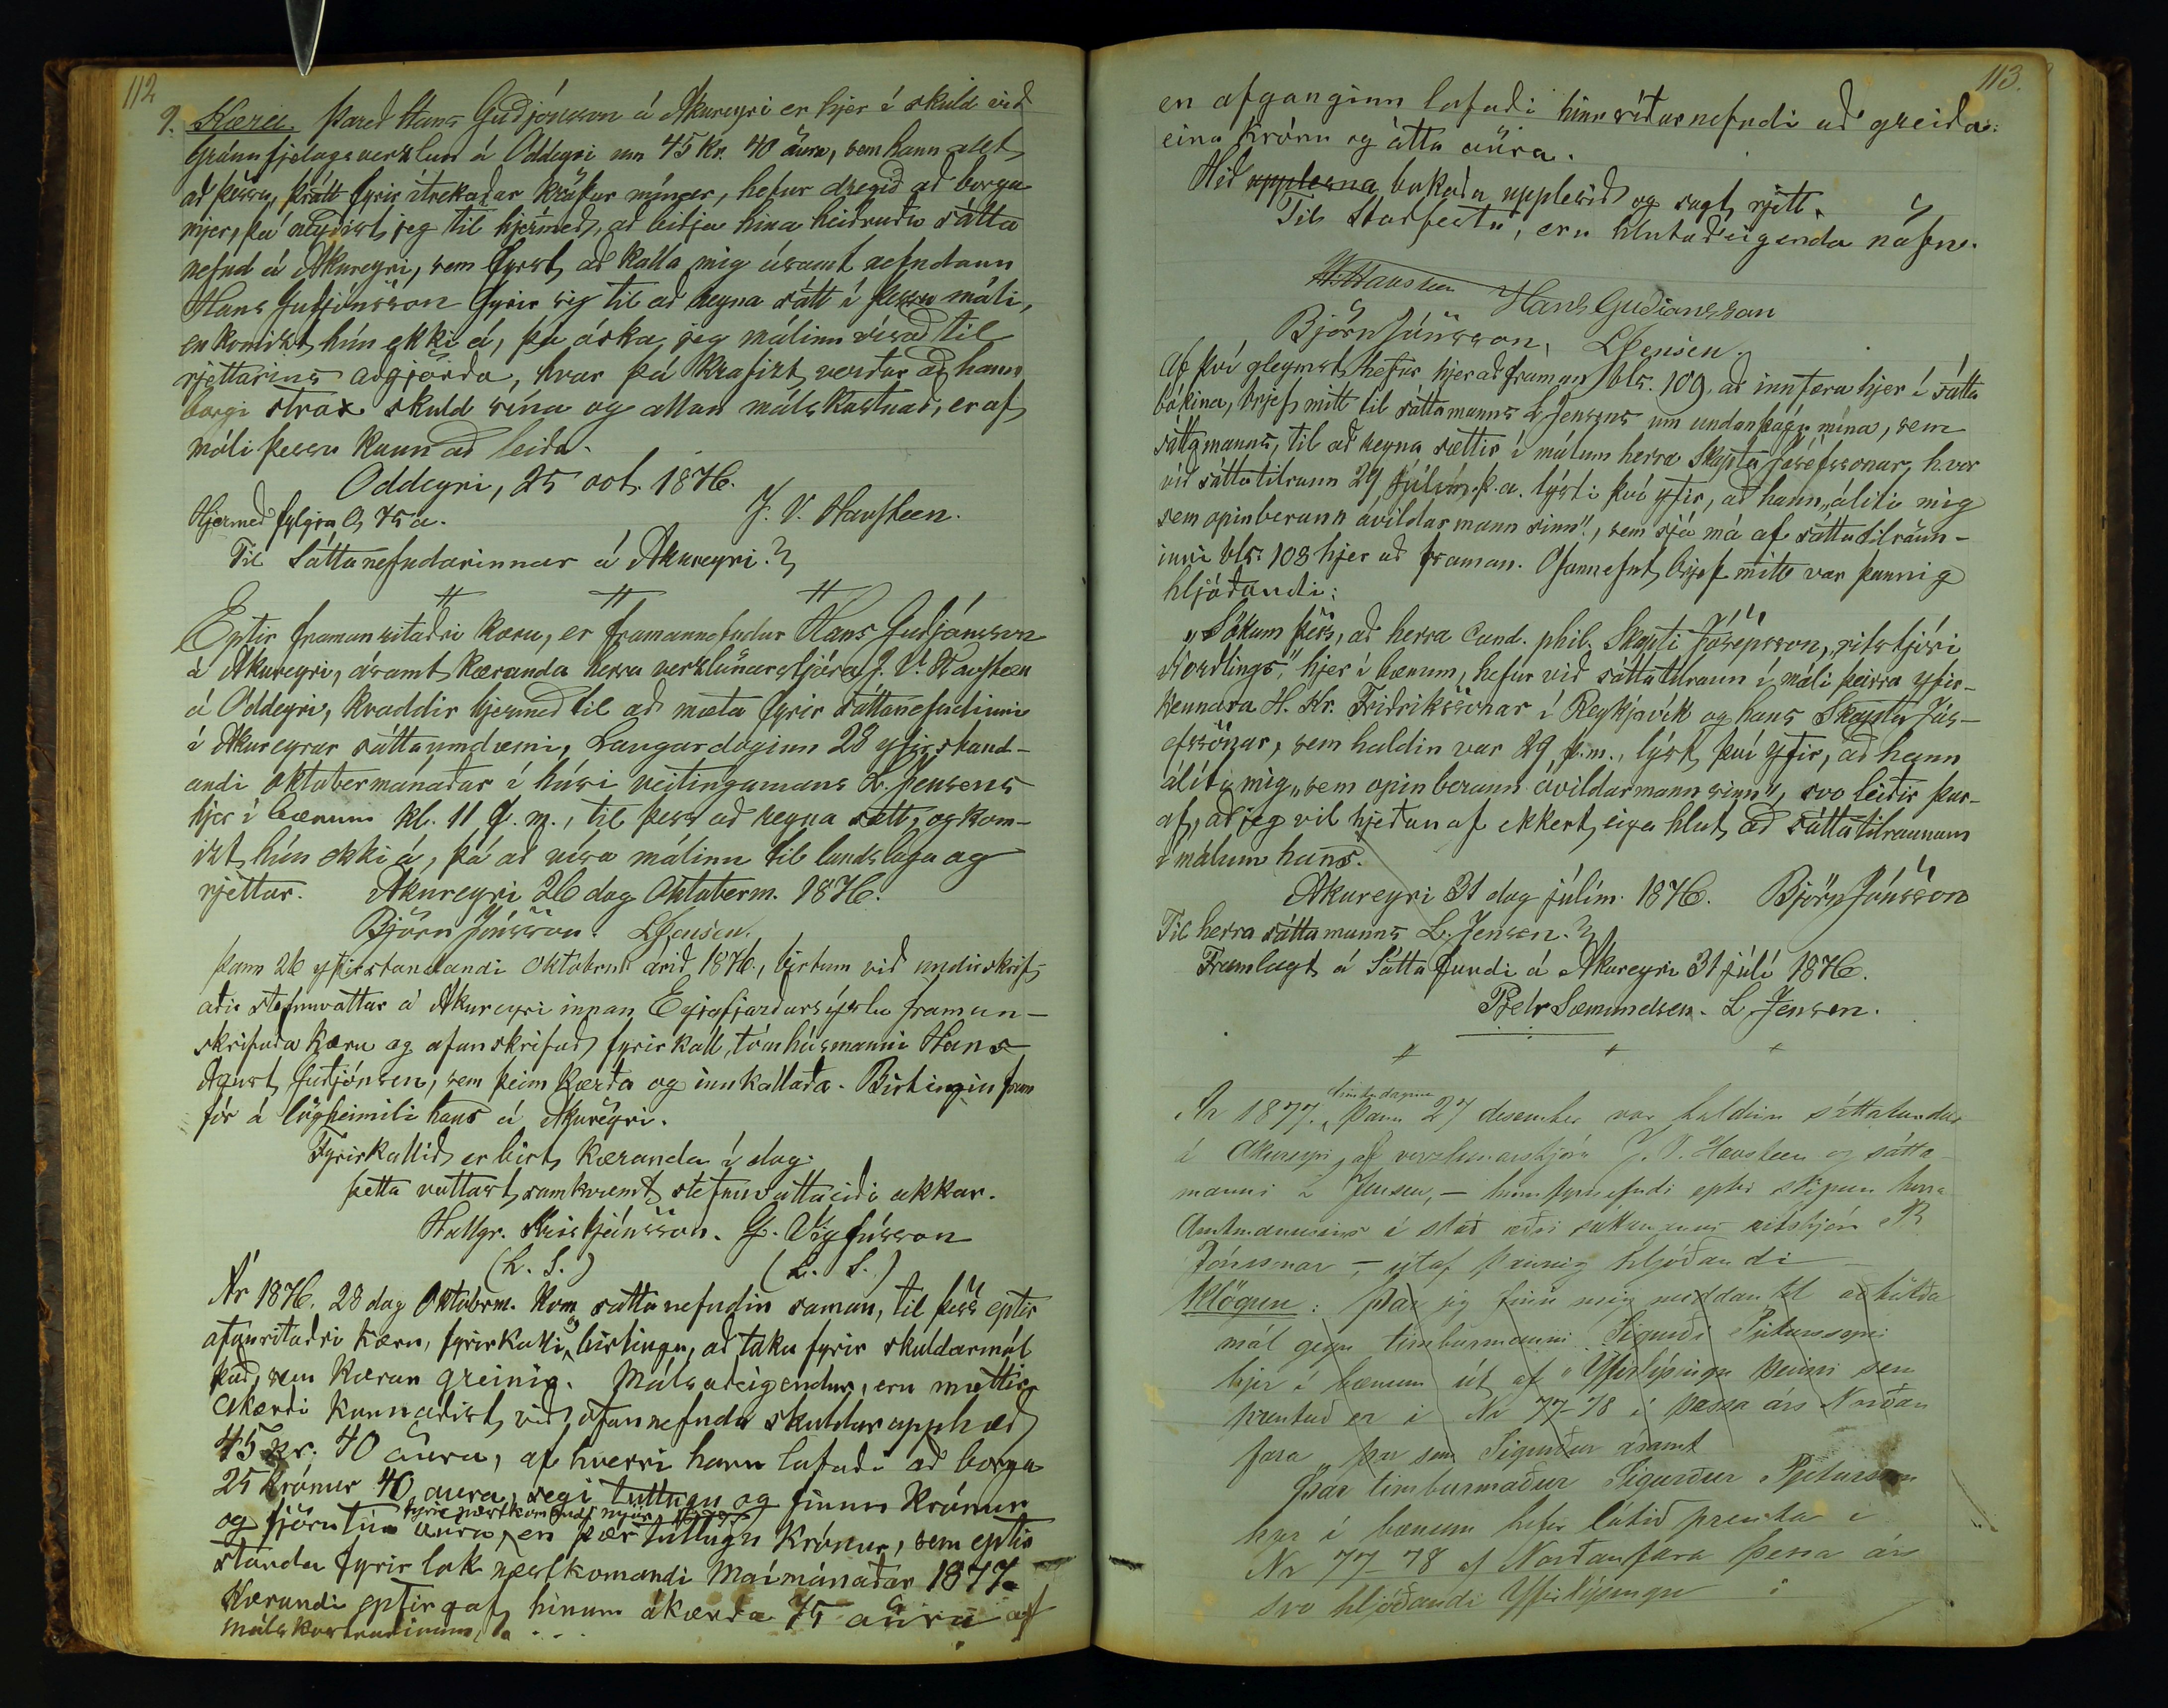 112
9. Kæra. Þareð Hans Guðjónsson á Akureyri er hjer í skuld við
Gránufjelagsverzlun á Oddeyri um 45 Kr. 40 aura, sem hann allt
að þessu, þrátt fyrir ítrekaðar kröfur mínar, hefur dregið að borga
mjer, þá neyðist jeg til hjermeð, að biðja hina heiðruðu sátta
nefnd á Akureyri, sem fyrst, að kalla mig ásamt nefndann
Hans Guðjónsson fyrir sig til að reyna sátt í þessu máli,
en komist hún ekki á, þá áska jeg málinu vísað til
rjettarins aðgjörða, hvar þá krafizt verður að hann
borgi strax skuld sína og allan málskostnað, er af
máli þessu kann að leiða.
Oddeyri, 25 oct. 1876.
Hjermeð fylgja 75 a. J. V. Havsteen.
Til Sáttanefndarinnar á Akureyri.
Eptir framanritaðri kæru, er framannefndur Hans Guðjónsson
á Akureyri, ásamt kæranda herra verzlunarstjóra J. V. Havsteen
á Oddeyri, kvaddir hjermeð til að mæta fyrir sáttanefndinni
í Akureyrar sáttaumdæmi, Laugardaginn 28 yfirstand-
andi októbermánaðar í húsi veitingamans L. Jensens
hjer í bænum kl. 11 f. m., til þess að reyna sátt, og kom-
izt hún ekki á, þá að vísa málinu til landslaga og
rjettar. Akureyri 26 dag Októberm. 1876.
Björn Jónsson. L Jensen.
Þann 26 yfirstandandi Októberm árið 1876, birtum við undirskrif-
aðir stefnuvottar á Akureyri innan Eyjafjarðarsýslu framan-
skrifaða kæru og ofanskrifað fyrirkall, tómhúsmanni Hans
Agust Guðjónsen, sem þeim kærða og innkallaða. Birtingin fram
fór á lögheimili hans á Akureyri.
Fyrirkallið er birt kæranda í dag.
Þetta vottast samkvæmt stefnuvottaeiði okkar.
Hallgr. Kristjánsson. G. Vigfússon
(L. S.) (L. S.)
Ár 1876. 28 dag Októberm. Kom sáttanefndin saman, til þess eptir
ofanritaðri kæru, fyrirkalli og birtingu, að taka fyrir skuldarmál
það, sem kæran greinir. Málsaðeigendur, eru mættir.
Ákærði kannaðist við ofannefnda skuldarupphæð
45 kr. 40 aura, af hverri hann lofaði að borga
25 krónur 40 aura, segi tuttugu og fimm krónur
og fjörutíu aura, fyrir næstkomandi nýár en þær tuttugu krónur, sem eptir
standa fyrir lok næstkomandi Maímánaðar 1877.
Kærandi eptirgaf hinum ákærða 75 aura af
málskostnaðinum,
113.
en afganginn lofaði hinn síðarnefndi að greiða:
eina krónu og átta aura.
Hið upplesna bokaða upplesið og sagt rjett.
Til Staðfestu, eru hlutaðeigenda nöfn.
Havsteen Hans Guðiónsson
Björn Jónsson, L Jensen.
Af því gleymst hefur hjer að framan bls. 109 að innfæra hjer í sátta
bókina, brjef mitt til sáttamanns L. Jensens um undanþágu mína, sem
sáttamanns, til að reyna sættir í málum herra Skapta Jósefssonar, hver
við sáttatilraun 29 Júlím. þ.a. lýsti því yfir, að hann „áliti mig
sem opinberann óvildarmann sinn", sem sjá má af sáttatilraun-
inni bls. 108 hjer að framan. Ofannefnt brjef mitt var þannig
hljóðandi:
„Sökum þess, að herra Cand. phil. Skapti Jósepsson, ritstjóri
„Norðlings", hjer í bænum, hefur við sáttatilraun í máli þeirra yfir-
kennara H. Kr. Friðrikssonar í Reykjavík og hans Skapta Jós-
efssonar, sem haldin var 29 þ.m., lýst því yfir, að hann
áliti mig „sem opinberann óvildarmann sinn", svo leiðir þar-
af, að jeg vil hjeðan af ekkert eiga hlut að sáttatilraunum
í málum hans.
Akureyri 31 dag júlím. 1876. Björn Jónsson
Til herra sáttamanns L. Jensen.
Framlagt á Sáttafundi á Akureyri 31 júlí 1876.
Petr Sæmundsen. L. Jensen.
Ár 1877. fimtudaginn þann 27 desember var haldinn sáttafundur
á Akureyri, af verzlunarstjóra J. V. Havsteen og sátta-
manni L Jensen, — hinn fyrnefndi eptir skipun herra
Amtmannsins í stað sáttamanns ritstjóra B
Jónssonar — útaf þannig hljóðandi
Klögun: Þar jeg finn mig neyddan til að höfða
mál gegn timburmanni Sigurði Pjeturssyni
hjer í bænum út af „Yfirlýsingu þeirri sem
prentuð er í Nr 77-78 í þessa árs Norðan
fara þar sem Sigurður ásamt
Þar timburmaður Sigurður Pjetursson
hjer í bænum hefir látið prenta í
Nr 77-78 af Norðanfara þessa árs
svo hljóðandi Yfirlýsingu